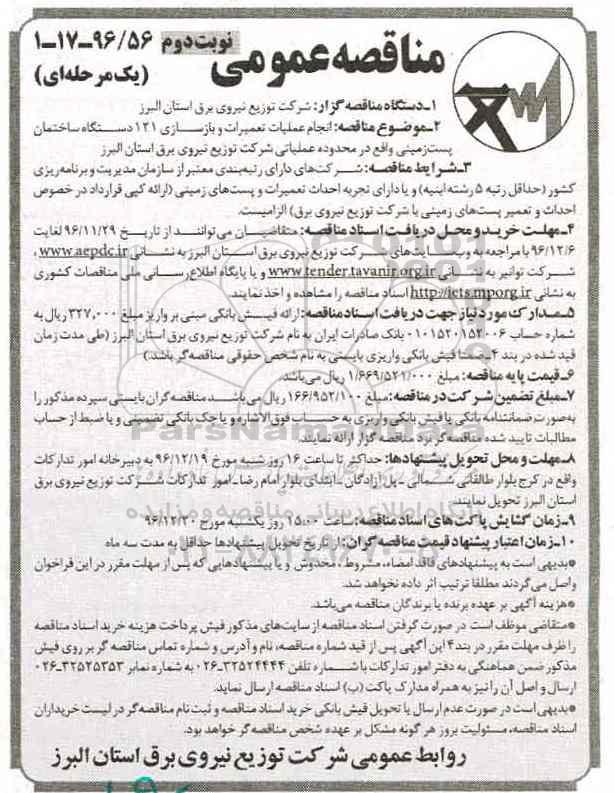 مناقصه عمومی
نوبت دوم
۱-۱۷-۹۶/۵۶
(یک مرحله‌ای)
۱-دستگاه مناقصه گزار: شرکت توزیع نیروی برق استان البرز
۲-موضوع مناقصه: انجام عملیات تعمیرات و بازسازی ۱۲۱ دستگاه ساختمان
پست زمینی واقع در محدوده عملیاتی شرکت توزیع نیروی برق استان البرز
۳-شرایط مناقصه: شرکت‌های دارای رتبه‌بندی معتبر از سازمان مدیریت و برنامه‌ریزی
کشور (حداقل رتبه ۵ رشته ابنیه) و یا دارای تجربه احداث تعمیرات و پست‌های زمینی (ارائه کپی قرارداد در خصوص
احداث و تعمیر پست‌های زمینی با شرکت توزیع نیروی برق) الزامیست.
۴-مهلت خرید و محل دریافت اسناد مناقصه: متقاضیان می‌توانند از تاریخ ۹۶/۱۱/۲۹ لغایت
۹۶/۱۲/۶ با مراجعه به وب سایت‌های شرکت توزیع نیروی برق استان البرز به نشانی www.aepdc.ir ،
شرکت توانیر به نشانی www.tender.tavanir.org.ir و یا پایگاه اطلاع رسانی ملی مناقصات کشوری
به نشانی http://iets.mporg.ir اسناد مناقصه را مشاهده و اخذ نمایند.
۵-مدارک مورد نیاز جهت دریافت اسناد مناقصه: ارائه فیش بانکی مبنی بر واریز مبلغ ۳۲۷,۰۰۰ ریال به
شماره حساب ۰۱۰۱۵۲۰۱۵۲۰۰۶ بانک صادرات ایران به نام شرکت توزیع نیروی برق استان البرز (طی مدت زمان
قید شده در بند ۴-ضمنا فیش بانکی واریزی بایستی به نام شخص حقوقی مناقصه‌گر باشد.)
۶-قیمت پایه مناقصه: مبلغ ۱/۶۶۹/۵۲۱/۰۰۰ ریال می‌باشد.
۷-مبلغ تضمین شرکت در مناقصه: مبلغ ۱۶۶/۹۵۲/۱۰۰ ریال می‌باشد مناقصه گران بایستی سپرده مذکور را
به‌صورت ضمانتنامه بانکی یا فیش بانکی واریزی به حساب فوق‌الاشاره و یا چک بانکی تضمینی و یا ضبط از حساب
مطالبات تایید شده مناقصه گر نزد مناقصه گزار ارائه نمایند.
۸-مهلت و محل تحویل پیشنهادها: حداکثر تا ساعت ۱۶ روز شنبه مورخ ۹۶/۱۲/۱۹ به دبیرخانه امور تدارکات
واقع در کرج بلوار طالقانی شمالی - پل آزادگان - ابتدای بلوار امام رضا - امور تدارکات شرکت توزیع نیروی برق
استان البرز تحویل نمایند.
۹-زمان گشایش پاکت های اسناد مناقصه: ساعت ۱۵:۰۰ روز یکشنبه مورخ ۹۶/۱۲/۲۰
۱۰-زمان اعتبار پیشنهاد قیمت مناقصه گران: از تاریخ تحویل پیشنهادها حداقل به مدت سه ماه
*بدیهی است به پیشنهادهای فاقد امضاء، مشروط، مخدوش و یا پیشنهادهایی که پس از مهلت مقرر در این فراخوان
واصل می‌گردند مطلقا ترتیب اثر داده نخواهد شد.
*هزینه آگهی بر عهده برنده یا برندگان مناقصه می‌باشد.
*متقاضی موظف است در صورت گرفتن اسناد مناقصه از سایت‌های مذکور فیش پرداخت هزینه خرید اسناد مناقصه
را ظرف مهلت مقرر در بند ۴ این آگهی پس از قید شماره مناقصه، نام و آدرس و شماره تماس مناقصه گر بر روی فیش
مذکور ضمن هماهنگی به دفتر امور تدارکات با شماره تلفن ۳۲۵۲۴۴۴۴-۰۲۶ به شماره نمابر ۳۲۵۲۵۳۵۳-۰۲۶
ارسال و اصل آن را نیز به همراه مدارک پاکت (ب) اسناد مناقصه ارسال نماید.
*بدیهی است در صورت عدم ارسال یا تحویل فیش بانکی خرید اسناد مناقصه و ثبت نام مناقصه‌گر در لیست خریداران
اسناد مناقصه، مسئولیت بروز هر گونه مشکل بر عهده شخص مناقصه گر خواهد بود.
روابط عمومی شرکت توزیع نیروی برق استان البرز
ParsNamadData
پایگاه اطلاع رسانی مناقصه و مزایده